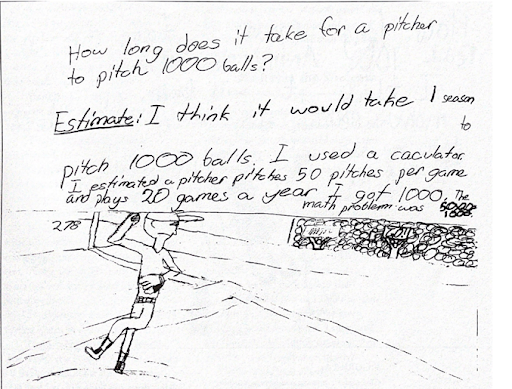 How long does it take for a pitcher
to pitch 1000 balls?
Estimate: I think it would take 1 season
to
pitch 1000 balls. I used a caculator
I estimated a pitcher pitches 50 pitches per game
and plays 20 games a year. I got 1000. The
math problem was
278